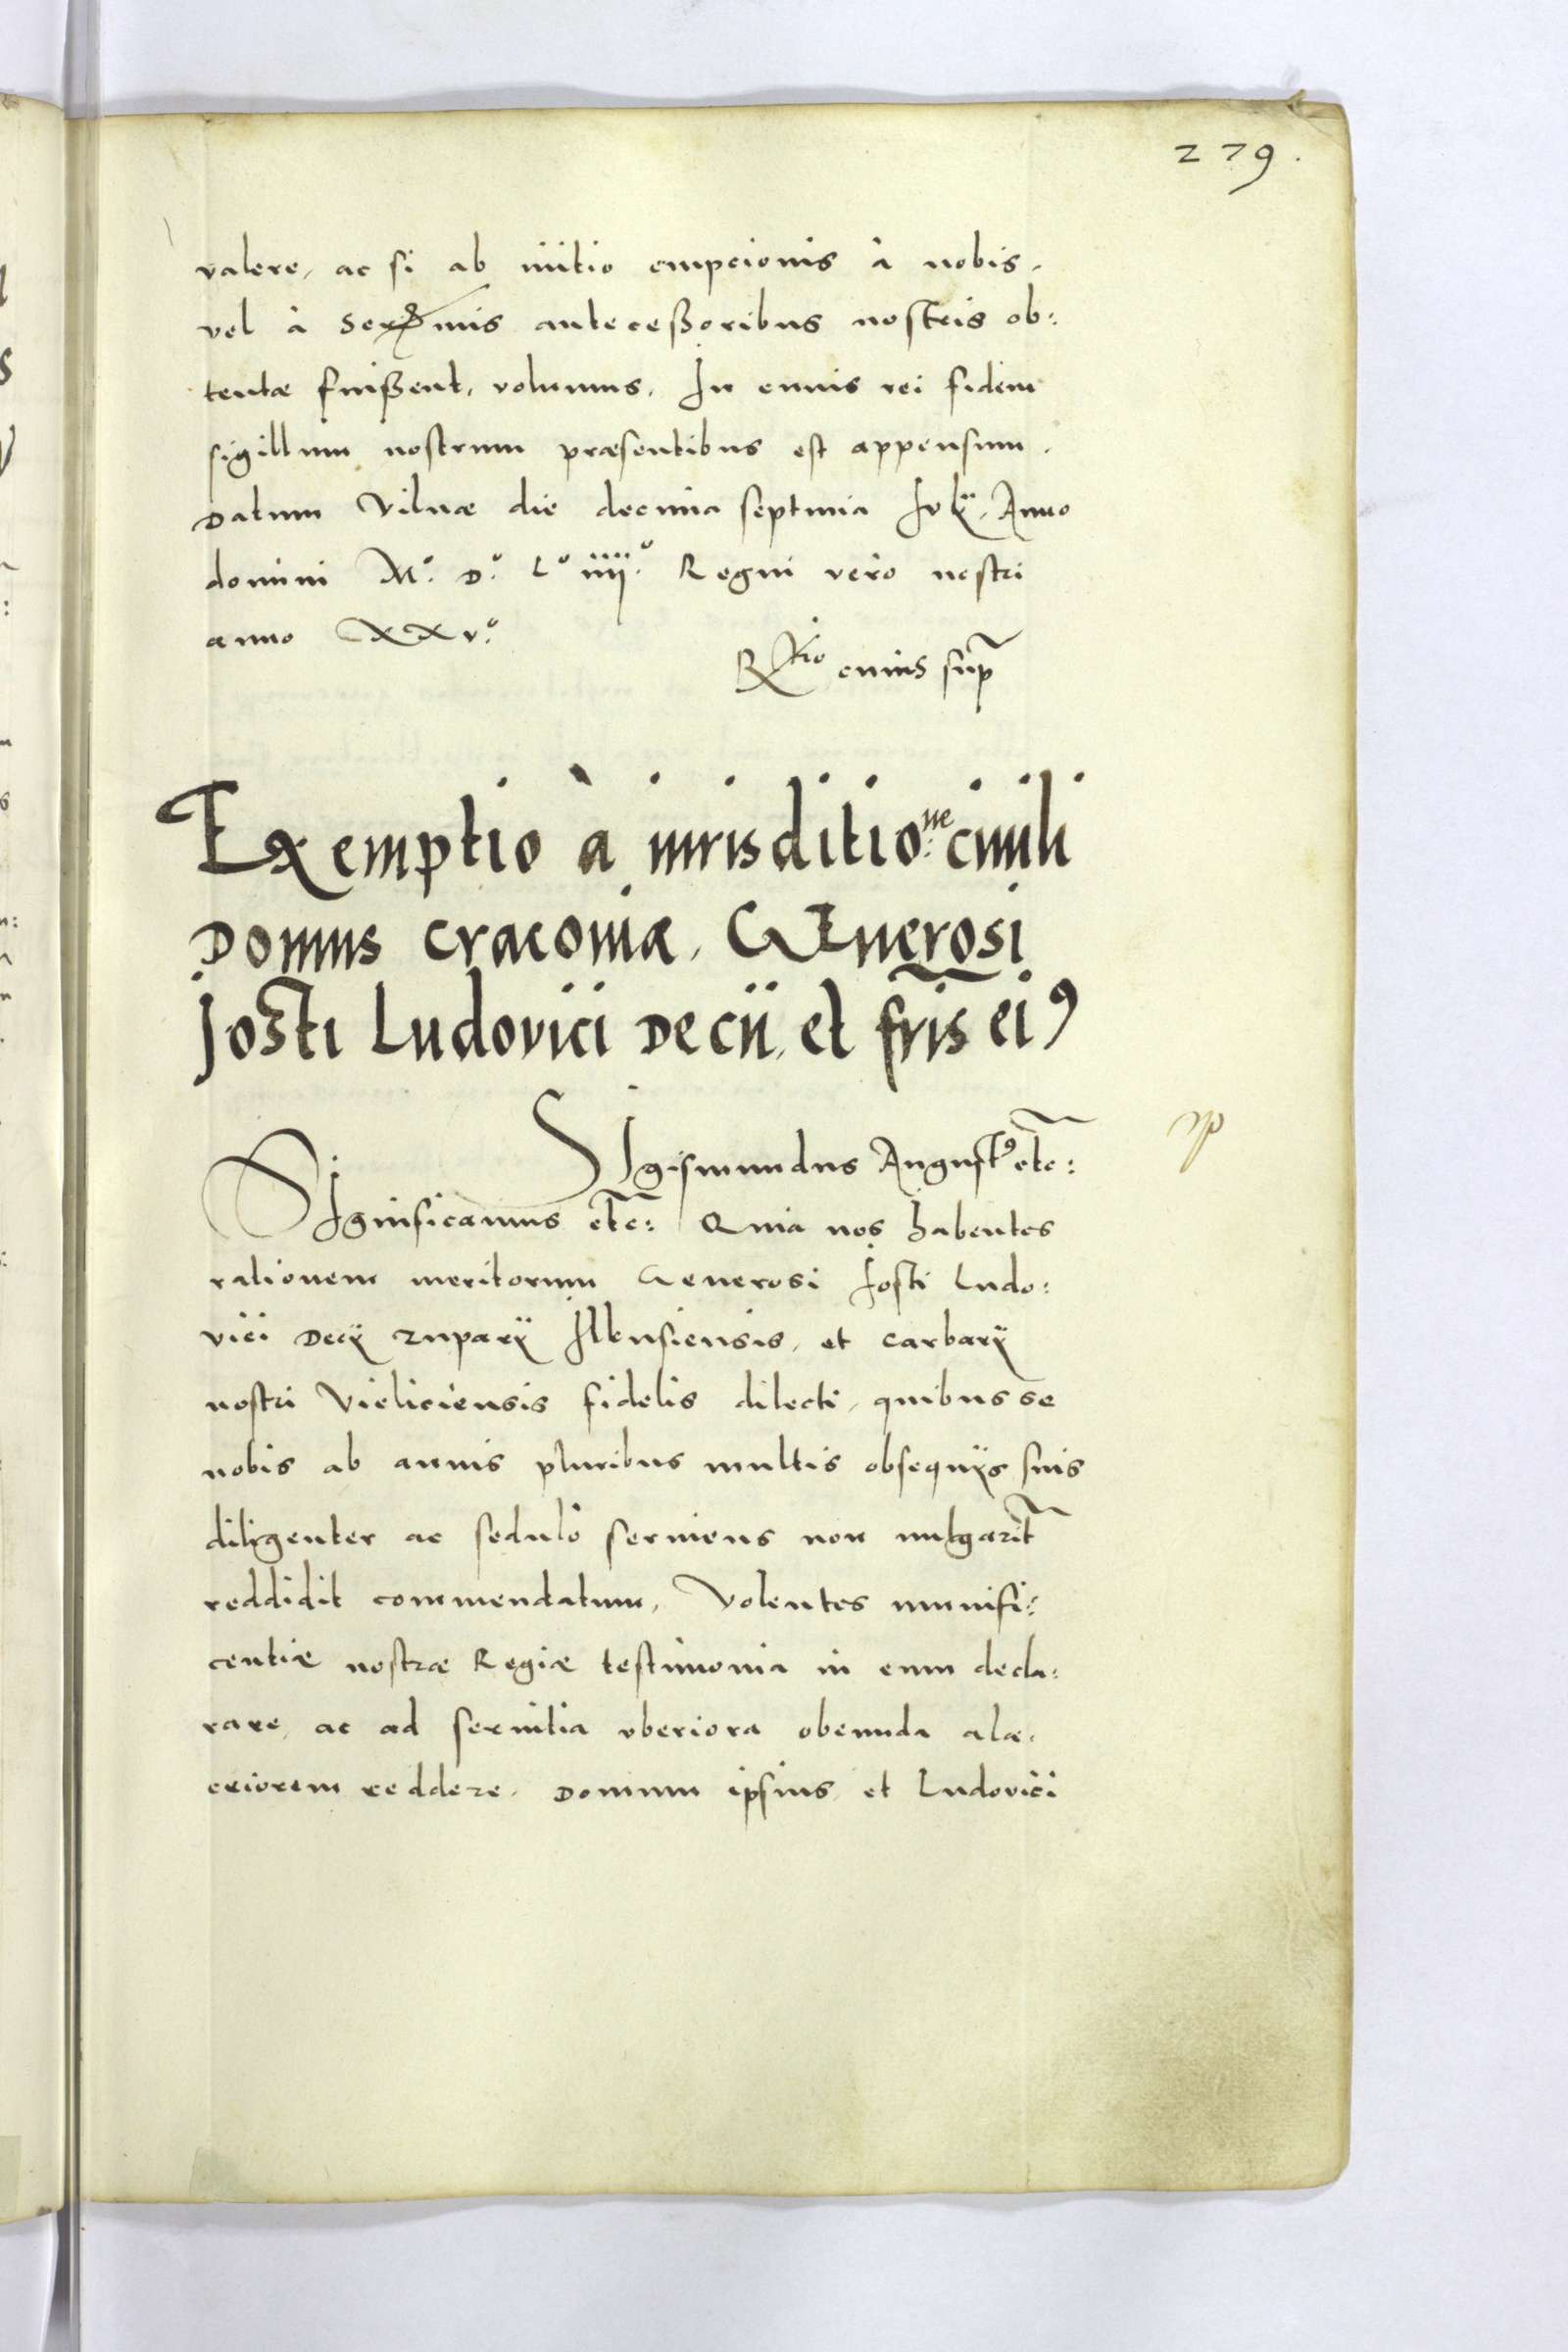 279.
valere, ac si ab initio empcionis à nobis,
vel à Serenmis anteceßoribus nostris ob:
tentæ fuißent, volumus. In cuius rei fidem
sigillum nostrum præsentibus est appensum.
Datum Vilnæ die decima septima Iulÿ, Anno
domini M.º D.º L.º iiij.º Regni vero nostri
anno XXv.º
Rtio cuius sup
Exemptio à iurisditio.ne ciuili
Domus Cracouiæ, GEnerosi
Josti Ludovici Decii, et fris ei9
SIgismundus August9 etc:
SIgnificamus etc: Quia nos habentes
rationem meritorum Generosi Josti Ludo:
vici Decÿ zuparÿ Ilkusiensis, et carbarÿ
nostri Vieliciensis fidelis dilecti, quibus se
nobis ab annis pluribus multis obsequÿs suis
diligenter ac sedulò seruiens non uulgarit
reddidit commendatum, Volentes munifi:
centiæ nostræ Regiæ testimonia in eum decla:
rare, ac ad seruitia vberiora obeunda ala:
criorem reddere, Domum ipsius, et Ludovici